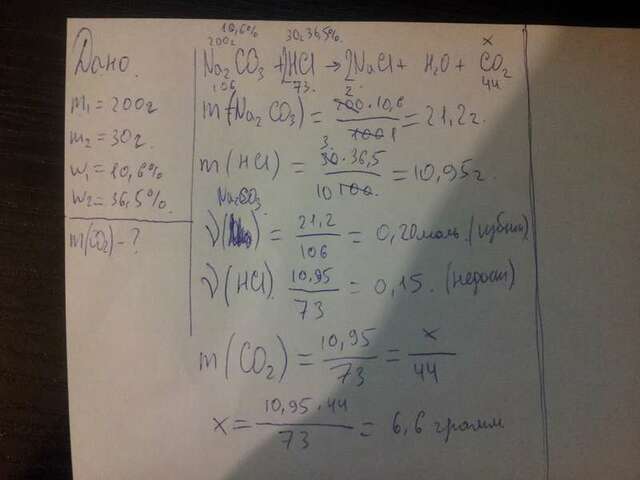 Дано.
m₁ = 200г
m₂ = 30г.
w₁ = 10,6%
w₂ = 36,5%.
m(CO₂) - ?
10,6% 30г. 36,5% x
200г
Na₂CO₃ + 2HCl → 2NaCl + H₂O + CO₂
106 73. 2. 44
m(Na₂CO₃) = 200 · 10,6 / 100 1 = 21,2г.
m(HCl) = 3. 30 · 36,5 / 10 100 = 10,95г.
Na₂CO₃
ν( ) = 21,2 / 106 = 0,20 моль. (избыт)
ν(HCl) 10,95 / 73 = 0,15. (недост)
m(CO₂) = 10,95 / 73 = x / 44
x = 10,95 · 44 / 73 = 6,6 грамм